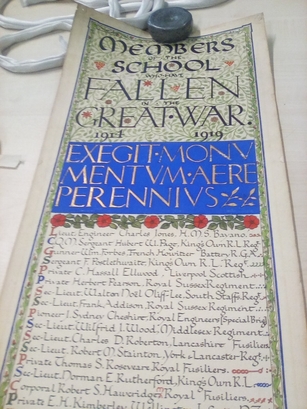 MEMBERS
OF THE
SCHOOL
WHO HAVE
FALLEN
IN THE
GREAT·WAR·
1914 1919
EXEGIT·MONV
MENTVM·AERE
PERENNIVS
Lieut. Engineer Charles Jones, H.M.S. Bayano.
C.Q.M. Sergeant Hubert W. Page, King's Own R.L. Reg
Gunner Wm. Forbes, Trench Howitzer Battery R.G.A.
Sergeant F. Postlethwaite, King's Own R.L. Reg
Private C. Hassall Ellwood, Liverpool Scottish.
Private Herbert Pearson, Royal Sussex Regiment
Sec-Lieut. Walter Noel Oliff-Lee, South Staffs. Reg
Sec-Lieut. Frank Addison, Royal Sussex Regiment
Pioneer J. Sydney Cheshire, Royal Engineers Special Brig
Sec-Lieut. Wilfrid J. Wood, Middlesex Regiment
Sec-Lieut. Charles D. Roberton, Lancashire Fusiliers
Sec-Lieut. Robert M. Stainton, York & Lancaster Regt.
Private Thomas S. Rosevear, Royal Fusiliers
Sec-Lieut. Norman E. Rutherford, King's Own R.L.
Corporal Robert S. Hauxridge, Royal Fusiliers
Private E. H. Kimberley,